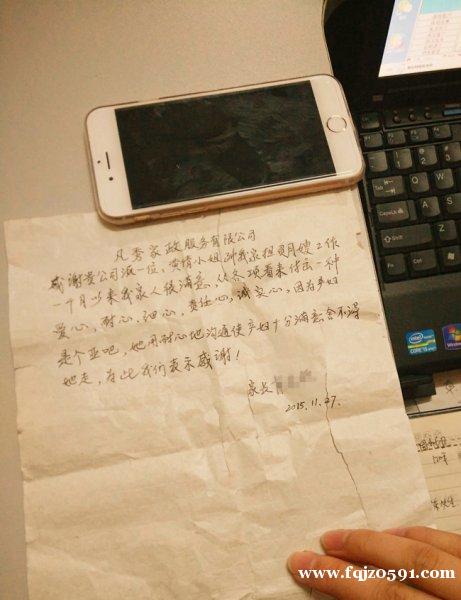 凡秀家政服务有限公司
感谢贵公司派一位,黄倩小姐到我家担负月嫂工作
一个月以来我家人很满意,从各项看来付出一种
爱心,耐心,细心,责任心,诚实心,因为产妇
是个亚吧,她用耐心地沟通使产妇十分满意舍不得
她走,在此我们表示感谢!
家长
2015.11.27.
Tab
Caps Lock
Shift
Ctrl
intel
CORE i5
Windows
www.fqjz0591.com